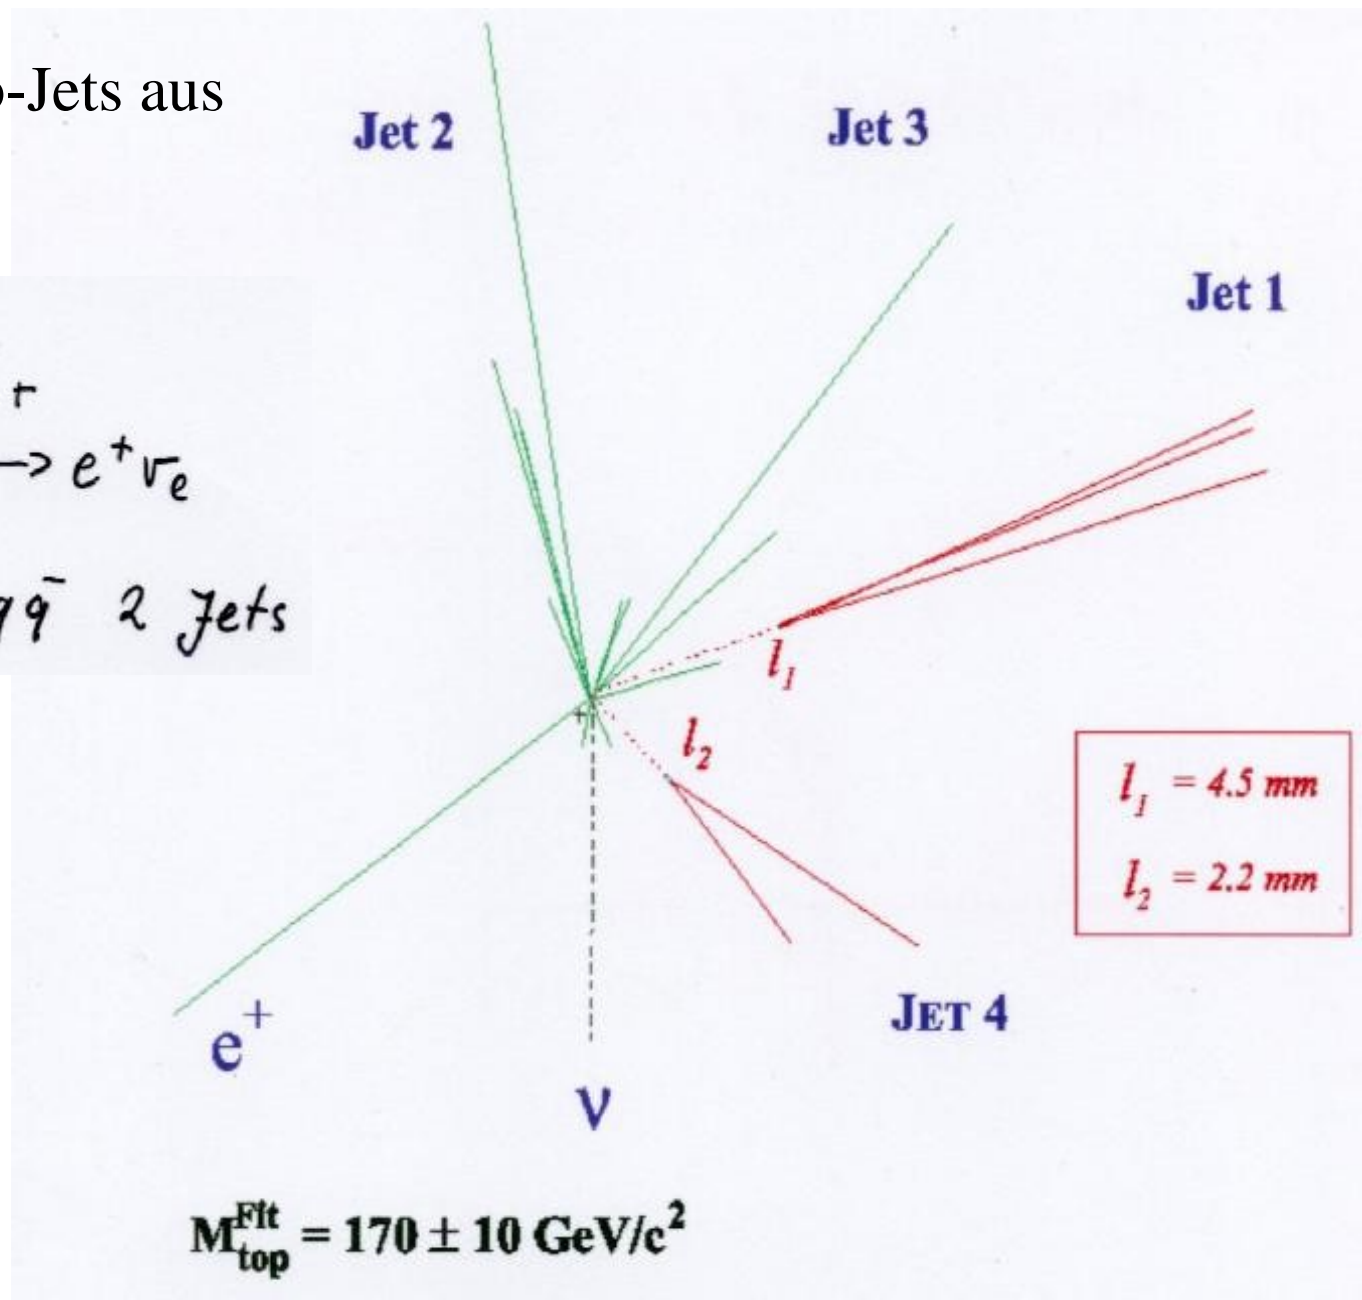 -Jets aus
Jet 2
Jet 3
Jet 1
+
→ e⁺νₑ
q̄ 2 Jets
l₁
l₂
l₁ = 4.5 mm
l₂ = 2.2 mm
e⁺
ν
JET 4
M^Fit_top = 170 ± 10 GeV/c²